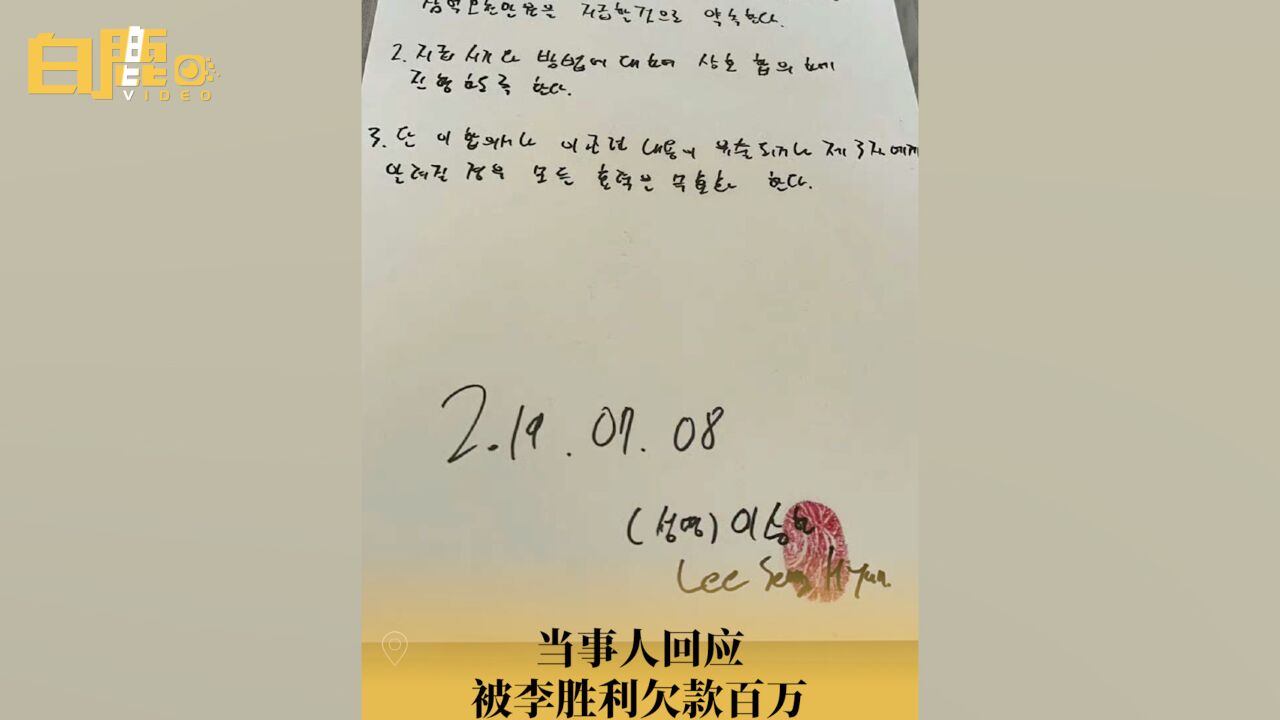 白鹿
VIDEO
삼억오천만원을 지급한것으로 약속한다.
2. 지급 시기나 방법에 대하여 상호 협의 하에
진행 하도록 한다.
3. 단 이 합의서나 이 근건 내용이 유출되거나 제 3자에게
알려질 경우 모든 효력은 무효화 한다.
2.19.07.08
(성명) 이승현
Lee Seng Hyun.
当事人回应
被李胜利欠款百万